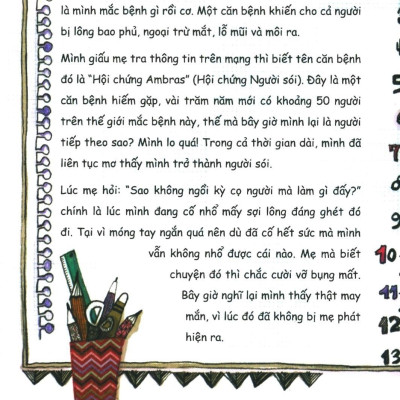 là mình mắc bệnh gì rồi cơ. Một căn bệnh khiến cho cả người
bị lông bao phủ, ngoại trừ mắt, lỗ mũi và môi ra.
Mình giấu mẹ tra thông tin trên mạng thì biết tên căn bệnh
đó là “Hội chứng Ambras” (Hội chứng Người sói). Đây là một
căn bệnh hiếm gặp, vài trăm năm mới có khoảng 50 người
trên thế giới mắc bệnh này, thế mà bây giờ mình lại là người
tiếp theo sao? Mình lo quá! Trong cả thời gian dài, mình đã
liên tục mơ thấy mình trở thành người sói.
Lúc mẹ hỏi: “Sao không ngồi kỳ cọ người mà làm gì đấy?”
chính là lúc mình đang cố nhổ mấy sợi lông đáng ghét đó
đi. Tại vì móng tay ngắn quá nên dù đã cố hết sức mà mình
vẫn không nhổ được cái nào. Mẹ mà biết
chuyện đó thì chắc cười vỡ bụng mất.
Bây giờ nghĩ lại mình thấy thật may
mắn, vì lúc đó đã không bị mẹ phát
hiện ra.
7
8
9
10
11
12
13